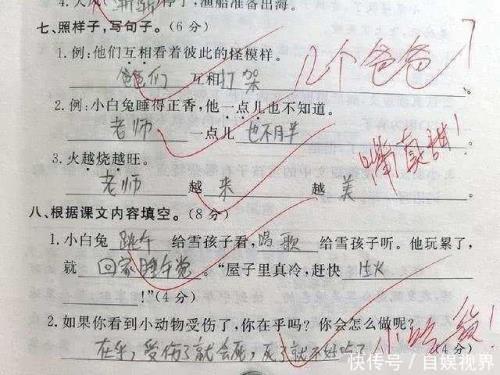 4. 大成 渐渐 停了，渔船准备出海。
七、照样子，写句子。(6 分)
1. 例：他们互相看着彼此的怪模样。
爸爸们 互相打架 。 几个爸爸？
2. 例：小白兔睡得正香，他一点儿也不知道。
老师 一点儿 也不月半 。
3. 火越烧越旺。 嘴真甜！
老师 越 来 越 美 。
八、根据课文内容填空。(8 分)
1. 小白兔 跳午 给雪孩子看，唱歌 给雪孩子听。他玩累了，
就 回家睡午觉 。“屋子里真冷，赶快 生火
！”(4 分)
2. 如果你看到小动物受伤了，你在乎吗？你会怎么做呢？
在乎，受伤了就会死，死了就不好吃了 (4分) 小吃货！
快传号/自娱视界